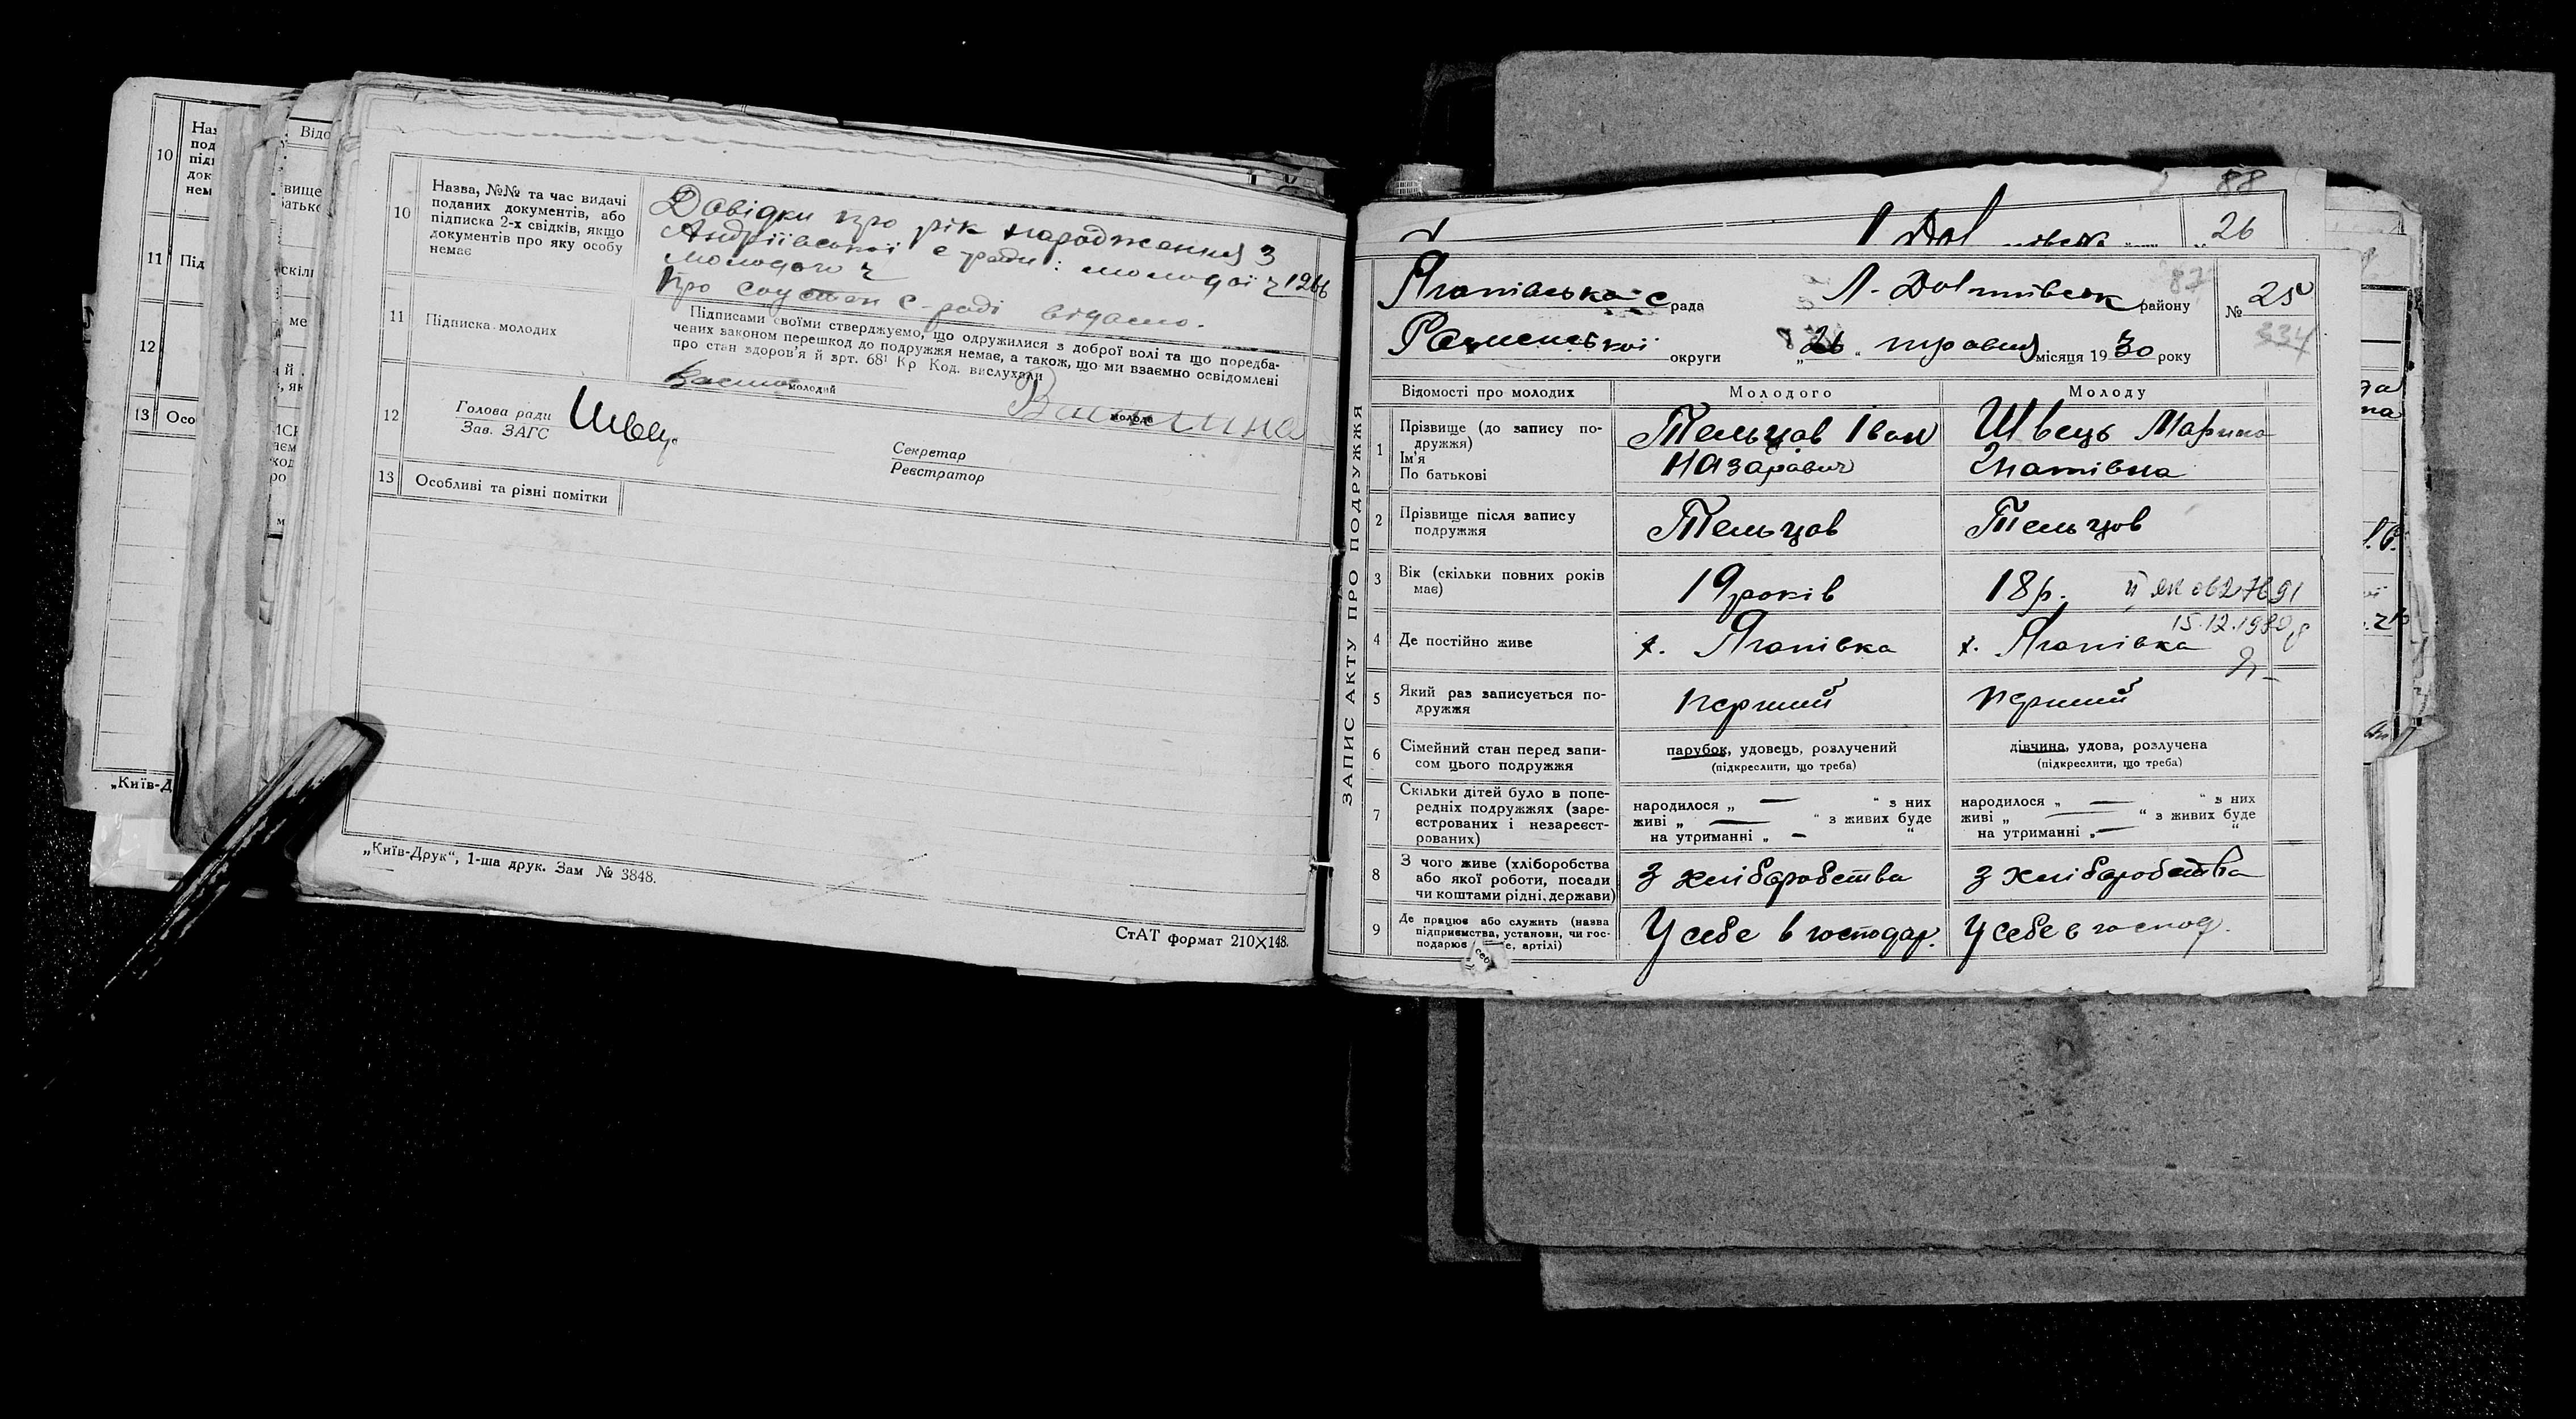 10
Назва, №№ та час видачі
поданих документів, або
підписка 2-х свідків, якщо
документів про яку особу
немає
Довідки про рік народження з
Андріївської с ради: молодої
молодого
Про соц стан с-раді відомо.
11
Підписка молодих
Підписами своїми стверджуємо, що одружилися з доброї волі та що поредба-
чених законом перешкод до подружжя немає, а також, що ми взаємно освідомлені
про стан здоров'я й арт. 68¹ Кр Код. вислухали
молодий
молода
12
Голова ради
Зав. ЗАГС
Швець
Секретар
Реєстратор
13
Особливі та різні помітки
„Київ-Друк“, 1-ша друк. Зам № 3848.
СтАТ формат 210×148.
88
26
ЗАПИС АКТУ ПРО ПОДРУЖЖЯ
Ягапівська с рада
району
№ 25
334
Роменської округи
„26“ травня місяця 1930 року
Відомості про молодих
Молодого
Молоду
1
Прізвище (до запису по-
дружжя)
Ім'я
По батькові
Тельцов Іван
Назарович
Швець Марина
Гнатівна
2
Прізвище після запису
подружжя
Тельцов
Тельцов
3
Вік (скільки повних років
має)
19 років
18 р.
15.12.1980
4
Де постійно живе
х. Ягапівка
х. Ягапівка
5
Який раз записується по-
дружжя
перший
перший
6
Сімейний стан перед запи-
сом цього подружжя
парубок, удовець, розлучений
(підкреслити, що треба)
дівчина, удова, розлучена
(підкреслити, що треба)
7
Скільки дітей було в попе-
редніх подружжях (заре-
єстрованих і незареєст-
рованих)
народилося „ — “ з них
живі „ — “ з живих буде
на утриманні „ — “
народилося „ — “ з них
живі „ — “ з живих буде
на утриманні „ — “
8
З чого живе (хліборобства
або якої роботи, посади
чи коштами рідні, держави)
З хліборобства
З хліборобства
9
Де працює або служить (назва
підприємства, установи, чи гос-
подарює е, артілі)
У себе в господар.
У себе в господ.